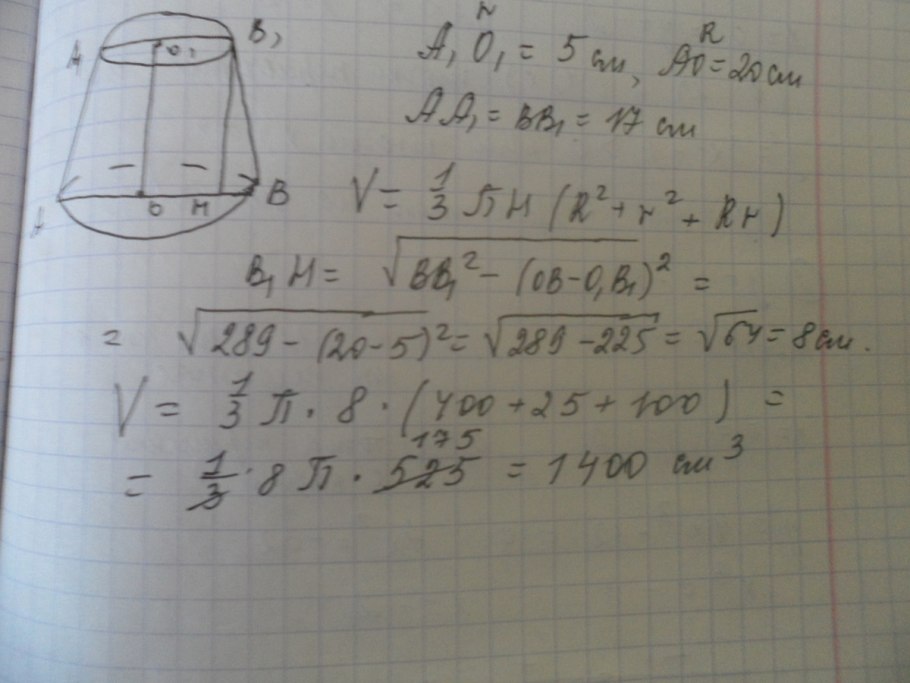 A₁ O₁ B₁
A O H B
r R
A₁O₁ = 5 см, AO = 20 см
AA₁ = BB₁ = 17 см
V = 1/3 ПH (R² + r² + Rr)
B₁H = √BB₁² − (OB − O₁B₁)² =
= √289 − (20 − 5)² = √289 − 225 = √64 = 8 см.
V = 1/3 П · 8 · (400 + 25 + 100) =
175
= 1/3 · 8 П · 525 = 1400 см³